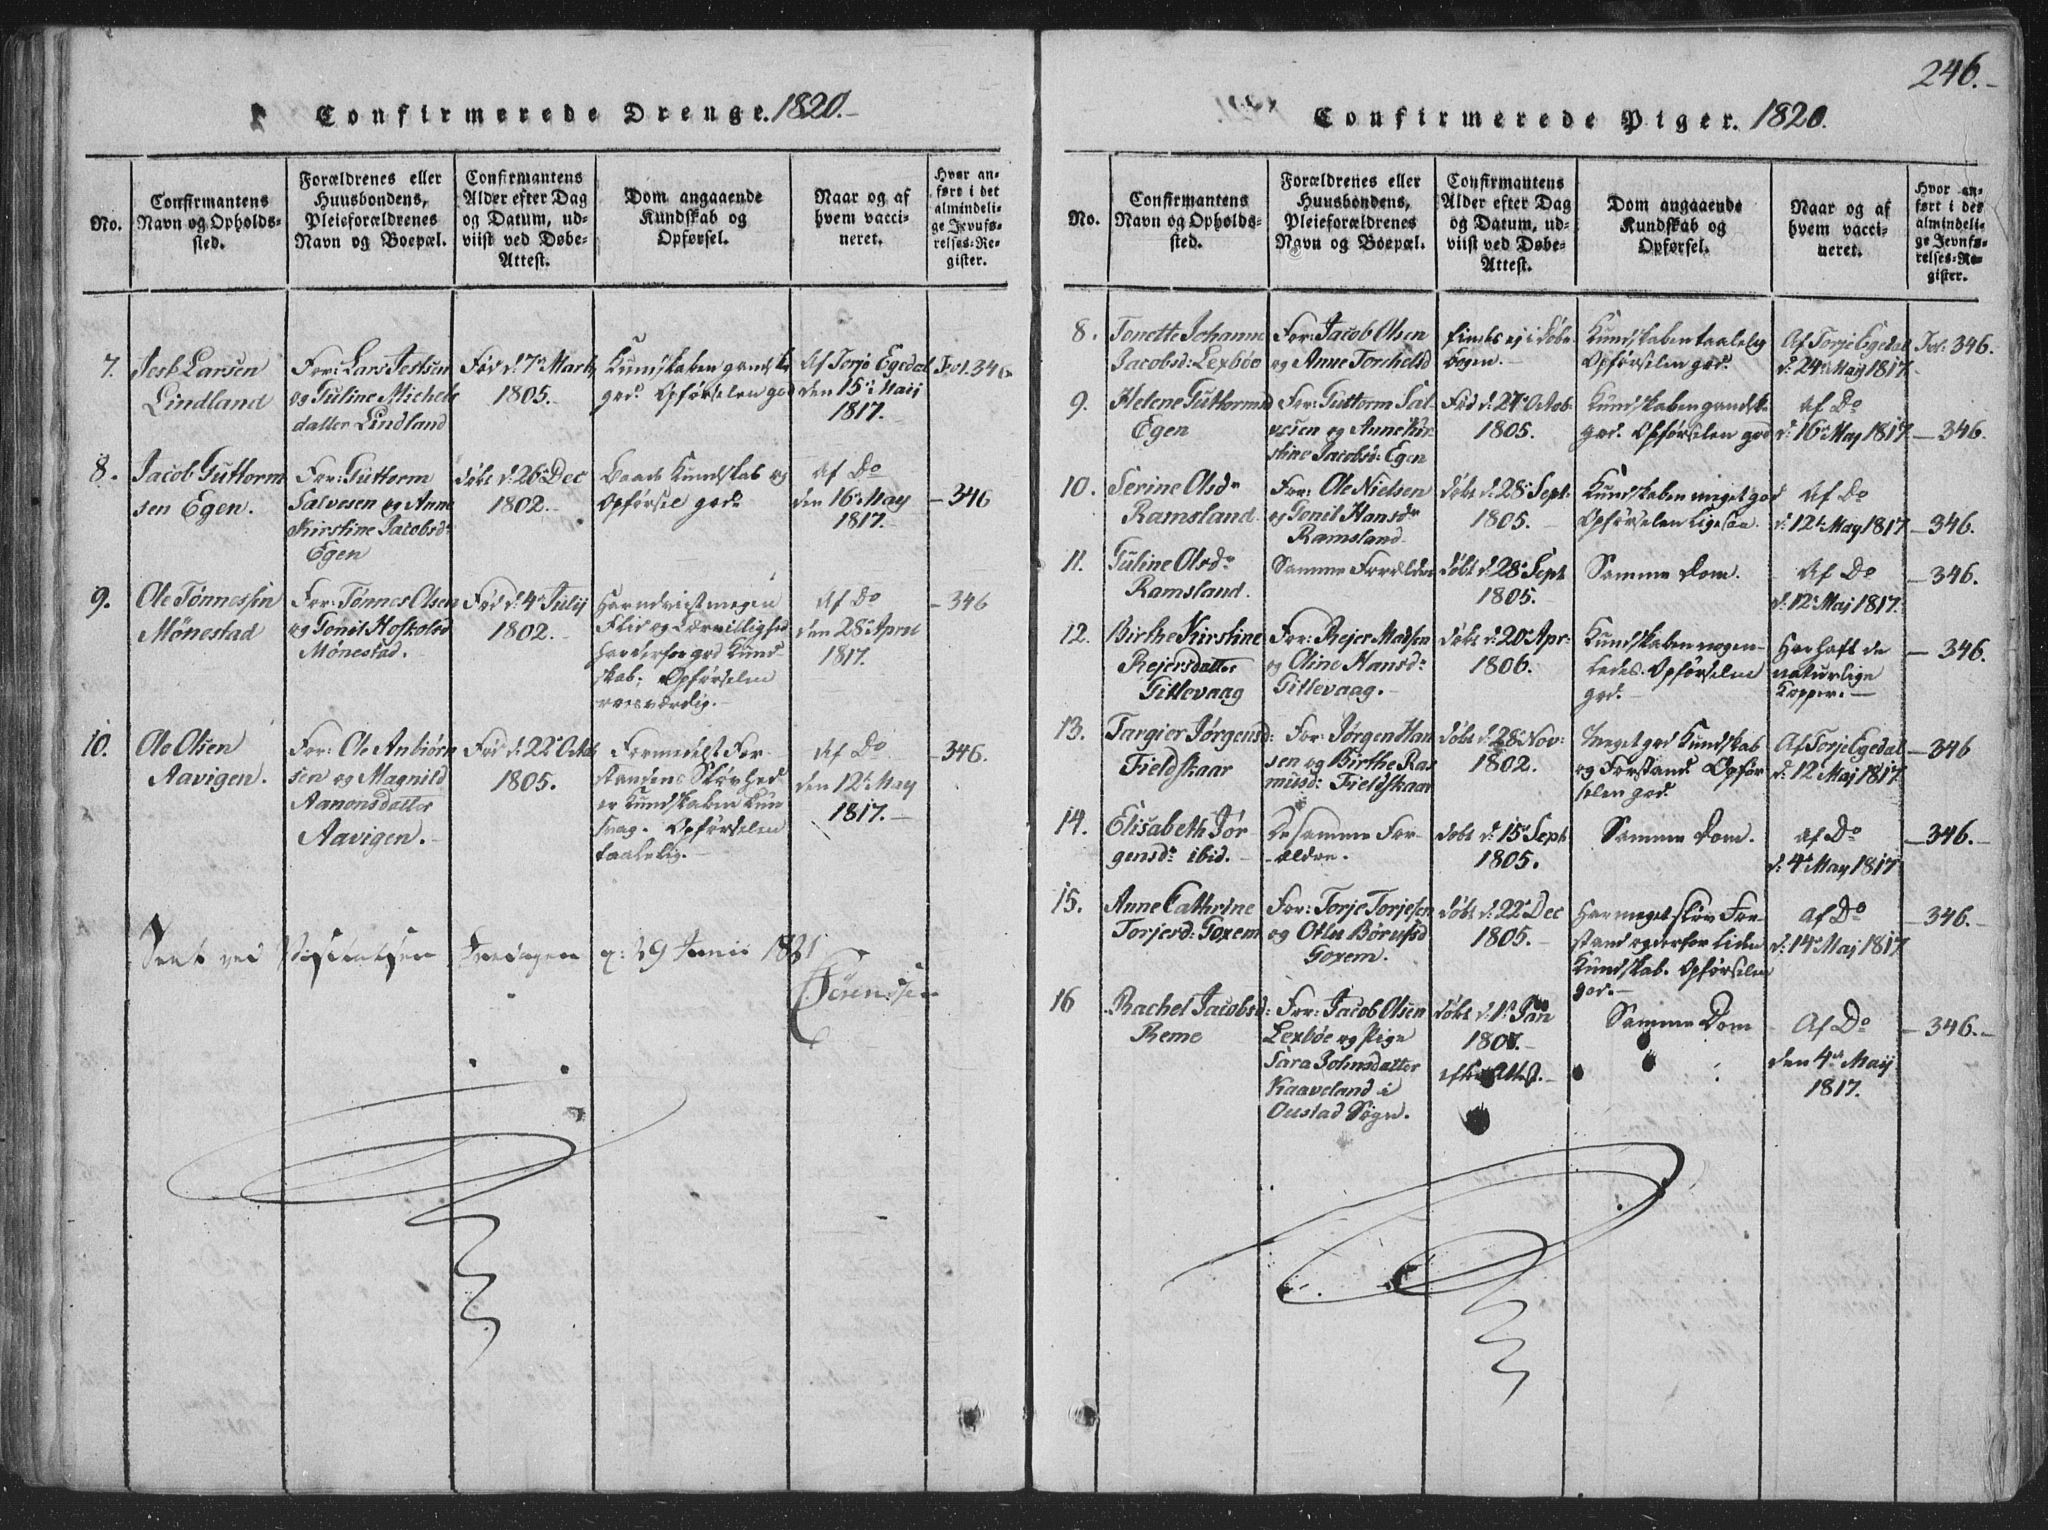 Confirmerede Drenge. 1820.
No.
Confirmantens
Navn og Opholds-
sted.
Forældrenes eller
Huusbondens,
Pleieforældrenes
Navn og Boepæl.
Confirmantens
Alder efter Dag
og Datum, ud-
viist ved Døbe-
Attest.
Dom angaaende
Kundskab og
Opførsel.
Naar og af
hvem vacci-
neret.
Hvor an-
ført i det
almindeli-
ge Jevnfø-
relses-Re-
gister.
7.
Larsen
Lindland
For: Lars
og Guline Michels
datter Lindland
Fød d. 7de Marts
1805.
Kundskaben gandske
god. Opførselen god
Af Torje Egedal
den 15de Maij
1817.
Fol. 346
8.
Jacob Guttorm
sen Egen.
For: Guttorm
Salvesen og Anne
Kirstine Jacobsd:
Egen
døbt d. 26de Dec
1802.
Baade Kundskab og
Opførsel god.
Af Do
den 16de May
1817.
- 346
9.
Ole Tønnesen
Mønestad
For: Tønnes Olsen
og Gonil
Mønestad.
Fød d. 4de Julij
1802.
Har udviist megen
Flid og Lærvillighed
har derfor god Kund
skab; Opførselen
roesværdig.
Af Do
den 28de April
1817.
- 346
10.
Ole Olsen
Aavigen.
For: Ole Anbiørn
sen og Magnild
Aanonsdatter
Aavigen.
Fød d. 22de Octob
1805.
Formedelst For-
standens Sløvhed
er Kundskaben kun
svag. Opførselen
taalelig.
Af Do
den 12te May
1817.
- 346.
Seet ved Visitatsen Fredagen 29 Junii 1821
Sørensen
246.
Confirmerede Piger. 1820.
No.
Confirmantens
Navn og Opholds-
sted.
Forældrenes eller
Huusbondens,
Pleieforældrenes
Navn og Boepæl.
Confirmantens
Alder efter Dag
og Datum, ud-
viist ved Døbe-
Attest.
Dom angaaende
Kundskab og
Opførsel.
Naar og af
hvem vacci-
neret.
Hvor an-
ført i det
almindeli-
ge Jevnfø-
relses-Re-
gister.
8.
Tonette Johanne
Jacobsd: Lexbøe
For: Jacob Olsen
og Anne Torchelsd
Findes ej i Døbe
bogen.
Kundskaben taalelig
Opførselen god.
Af Torje Egedal
d. 24de Maij 1817.
Fol: 346.
9.
Helene Guttormsd
Egen
For: Guttorm Sal-
vesen og Anne Kir-
stine Jacobsd: Egen
Fød d. 27de Octob:
1805.
Kundskaben gandske
god. Opførselen god
Af Do
d. 16de Maj 1817.
- 346.
10.
Serine Olsdr
Ramsland.
For: Ole Nielsen
og Gonil Hansdr
Ramsland
døbt d. 28de Sept.
1805.
Kundskaben meget god
Opførselen ligesaa
Af Do
d. 12te May 1817
- 346.
11.
Guline Olsdr
Ramsland.
Samme Forældre
døbt d. 28de Sept
1805.
Samme Dom.
Af Do
d. 12te Maj 1817.
- 346.
12.
Birthe Kirstine
Rejersdatter
Gitlevaag
For: Rejer Madsen
og Oline Hansd:
Gitlevaag.
døbt d. 20de Apr:
1806.
Kundskaben nogen-
ledes. Opførselen
god.
Har haft de
naturlige
Kopper.
- 346.
13.
Targier Jørgensd:
Fieldskaar
For: Jørgen Han
sen og Birthe Ras
musd: Fieldskaar
døbt d. 28de Nov:
1802.
Meget god Kundskab
og Forstand. Opfør
selen god.
Af Torje Egedal
d. 12te Maj 1817.
- 346
14.
Elisabeth Jør
gensdr ibid.
De samme For-
ældre.
døbt d. 15de Sept
1805.
Samme Dom.
Af Do
d. 4de May 1817
- 346.
15.
Anne Cathrine
Torjersd: Goxem
For: Torje Torjesen
og
Goxem.
døbt d. 22de Dec
1805.
Har meget sløv For-
stand og derfor liden
Kundskab. Opførselen
god.
Af Do
d. 14de Maj 1817
- 346.
16
Rachel Jacobsd:
Reme
For: Jacob Olsen
Lexbøe og Pige
Sara Johnsdatter
Kaaveland i
Oustad Sogn.
døbt d. 1ste Jan
1807.
efter Attest.
Samme Dom
Af Do
den 4de Maij
1817.
- 346.